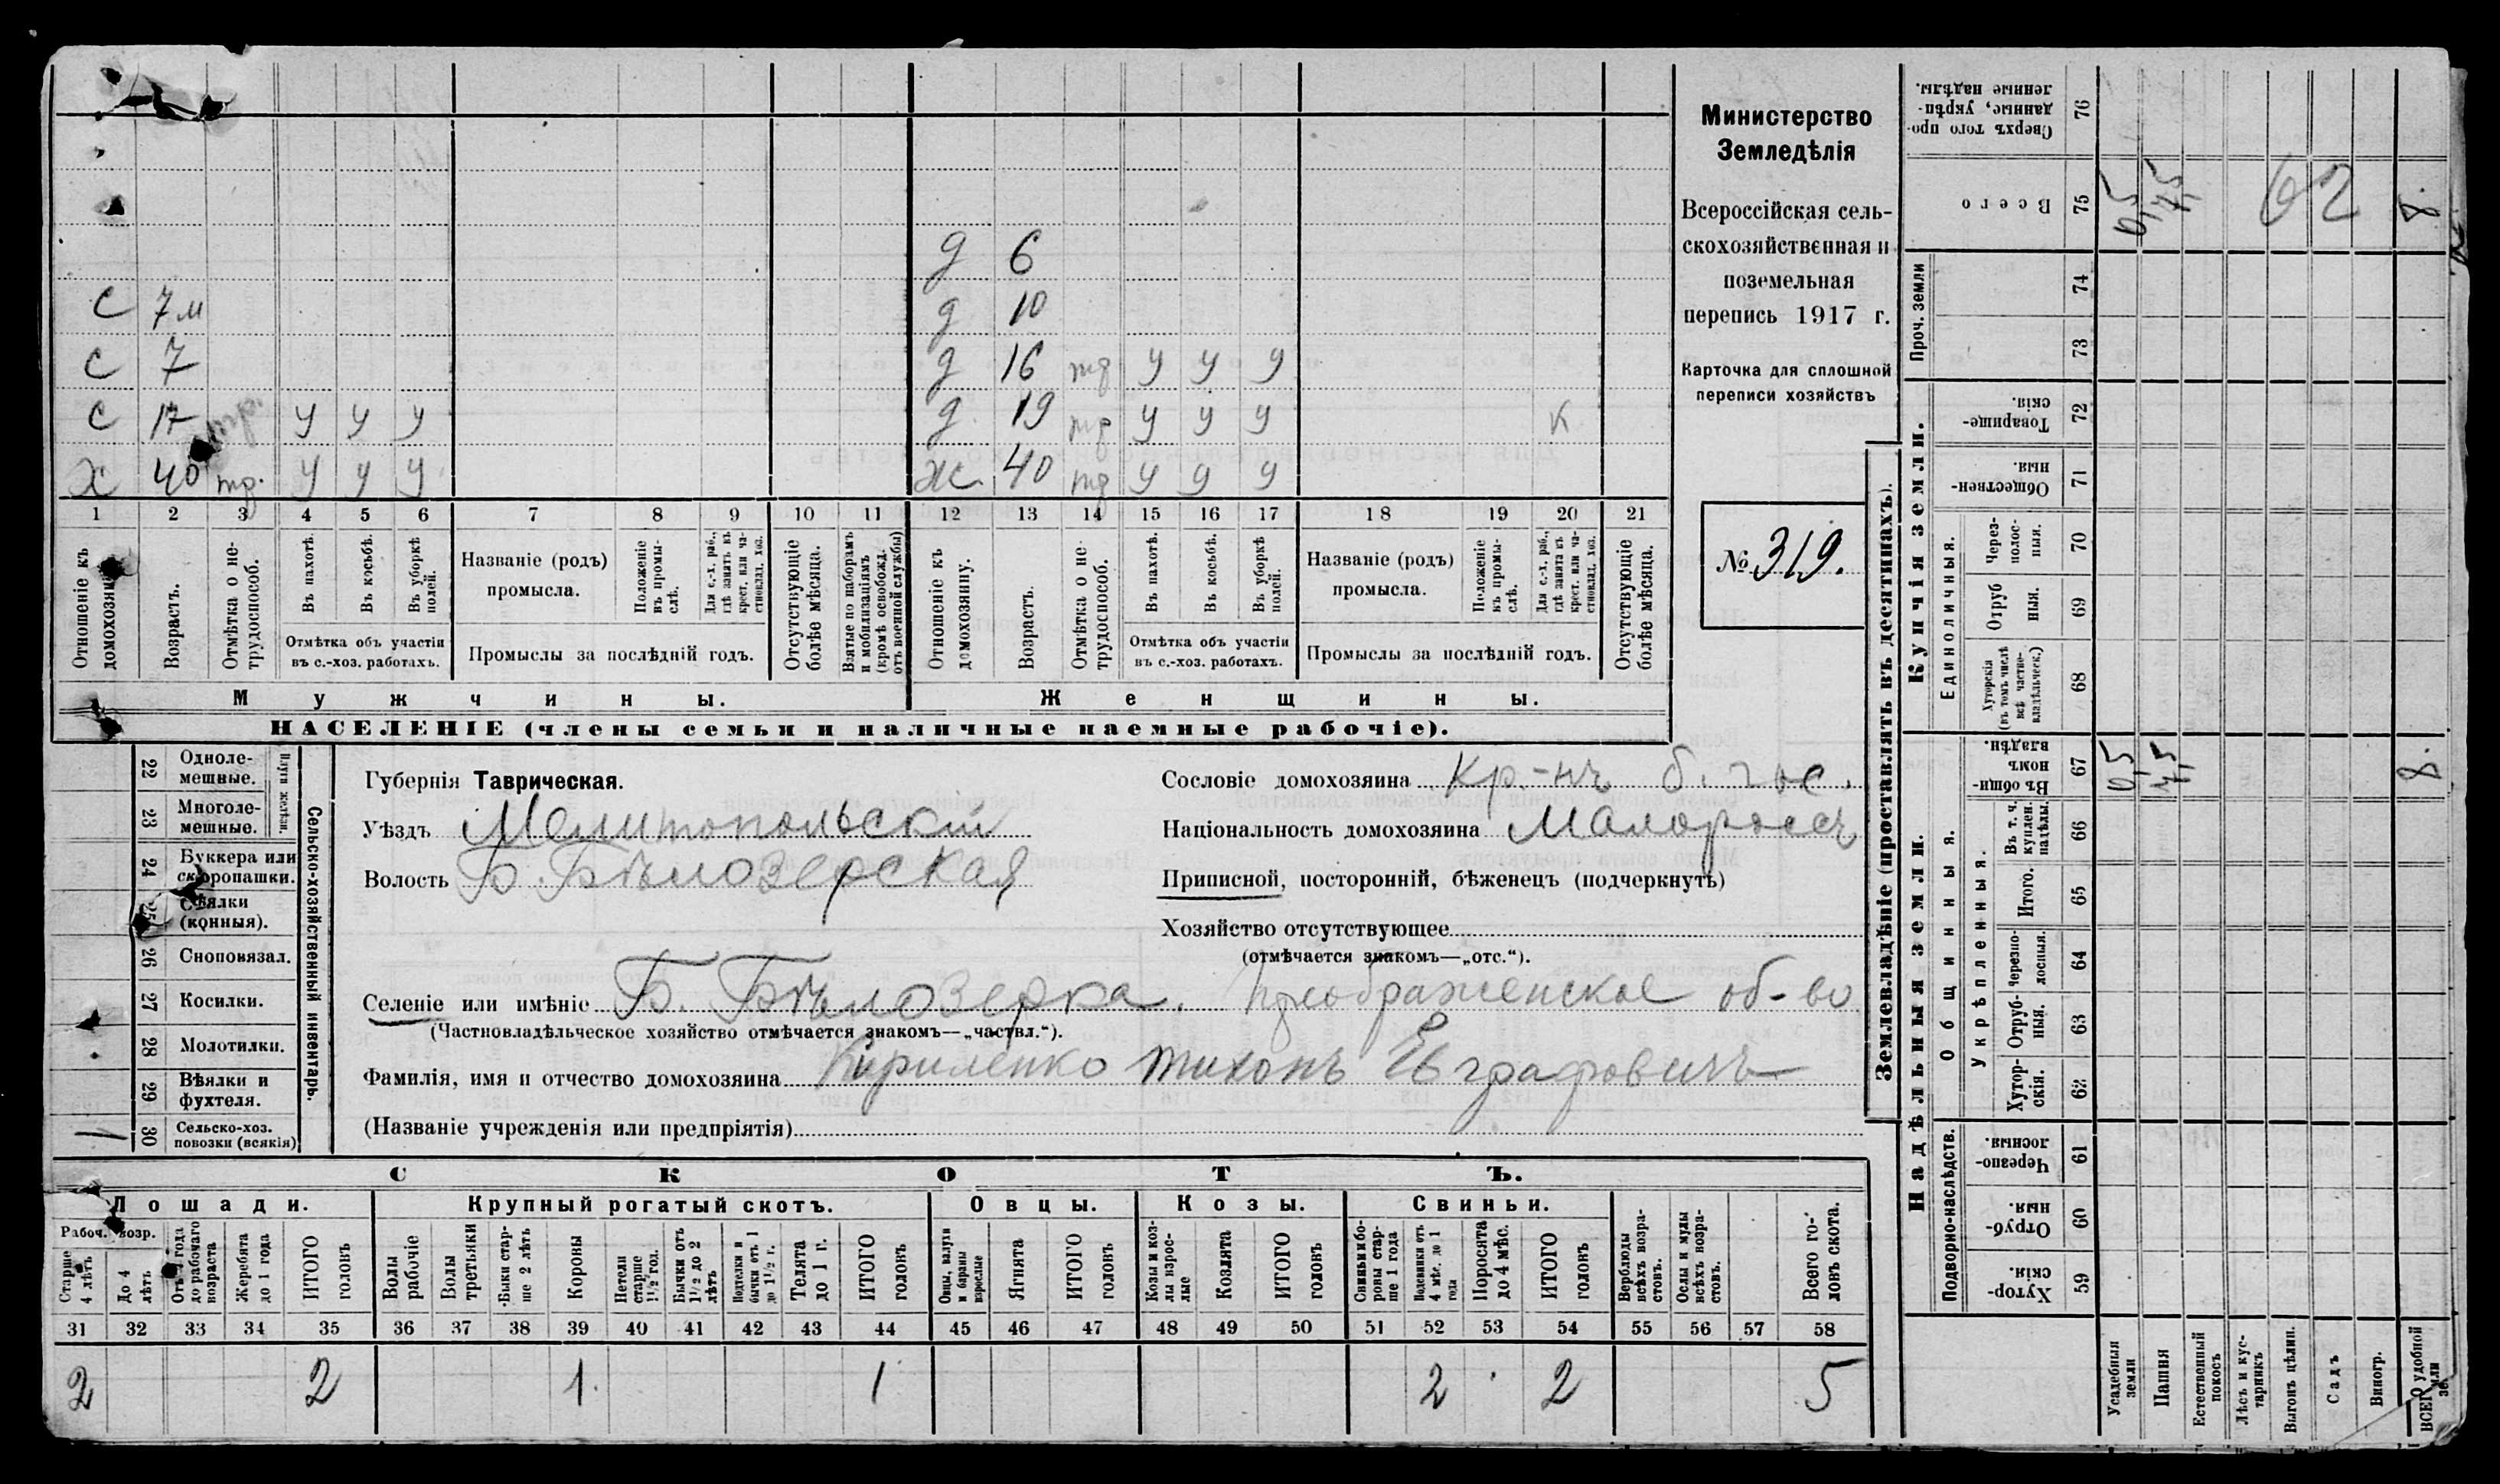 д 6
с 7м д 10
с 7 д 16 тр у у у
с 17 у у у д. 19 тр у у у К
х 40 тр. у у у ж. 40 тр у у у
1 2 3 4 5 6 7 8 9 10 11 12 13 14 15 16 17 18 19 20 21
Отношеніе къ домохозяину.
Возрастъ.
Отмѣтка о нетрудоспособ.
Въ пахотѣ.
Въ косьбѣ.
Въ уборкѣ полей.
Отмѣтка объ участіи
въ с.-хоз. работахъ.
Названіе (родъ)
промысла.
Положеніе въ промыслѣ.
Для с.-х. раб., гдѣ занятъ въ крест. или частновлад. хоз.
Промыслы за послѣдній годъ.
Отсутствующіе болѣе мѣсяца.
Взятые по наборамъ и мобилизаціямъ (кромѣ освобожд. отъ военной службы)
Отношеніе къ домохозяину.
Возрастъ.
Отмѣтка о нетрудоспособ.
Въ пахотѣ.
Въ косьбѣ.
Въ уборкѣ полей.
Отмѣтка объ участіи
въ с.-хоз. работахъ.
Названіе (родъ)
промысла.
Положеніе въ промыслѣ.
Для с.-х. раб., гдѣ занятъ въ крест. или частновлад. хоз.
Промыслы за послѣдній годъ.
Отсутствующіе болѣе мѣсяца.
Мужчины. Женщины.
НАСЕЛЕНІЕ (члены семьи и наличные наемные рабочіе).
Министерство
Земледѣлія
Всероссійская сель-
скохозяйственная и
поземельная
перепись 1917 г.
Карточка для сплошной
переписи хозяйствъ
№ 319.
Сельско-хозяйственный инвентарь.
Плуги желѣзн.
22 Одноле-
мешные.
23 Многоле-
мешные.
24 Буккера или
скоропашки.
25 Сѣялки
(конныя).
26 Сноповязал.
27 Косилки.
28 Молотилки.
29 Вѣялки и
фухтеля.
30 Сельско-хоз.
повозки (всякія)
1
Губернія Таврическая.
Уѣздъ Мелитопольскій
Волость Б. Бѣлозерская
Сословіе домохозяина Кр.-нъ б. гос.
Національность домохозяина Малороссъ
Приписной, посторонній, бѣженецъ (подчеркнуть)
Хозяйство отсутствующее
(отмѣчается знакомъ—„отс.“).
Селеніе или имѣніе Б. Бѣлозерка. Преображенское об-во
(Частновладѣльческое хозяйство отмѣчается знакомъ—„частвл.“).
Фамилія, имя и отчество домохозяина Кириленко Тихонъ Евграфовичъ
(Названіе учрежденія или предпріятія)
СКОТЪ.
Лошади. Крупный рогатый скотъ. Овцы. Козы. Свиньи.
Рабоч. возр.
Старше 4 лѣтъ
До 4 лѣтъ
Отъ 1 года до рабочаго возраста
Жеребята до 1 года
ИТОГО головъ
Волы рабочіе
Волы третьяки
Быки старше 2 лѣтъ
Коровы
Нетели старше 1½ год.
Бычки отъ 1½ до 2 лѣтъ
Подтелки и бычки отъ 1 до 1½ г.
Телята до 1 г.
ИТОГО головъ
Овцы, валухи и бараны взрослые
Ягнята
ИТОГО головъ
Козы и козлы взрослые
Козлята
ИТОГО головъ
Свиньи и боровы старше 1 года
Подсвинки отъ 4 мѣс. до 1 года
Поросята до 4 мѣс.
ИТОГО головъ
Верблюды всѣхъ возрастовъ.
Ослы и мулы всѣхъ возрастовъ.
Всего головъ скота.
31 32 33 34 35 36 37 38 39 40 41 42 43 44 45 46 47 48 49 50 51 52 53 54 55 56 57 58
2 2 1. 1 2 2 5
Землевладѣніе (проставлять въ десятинахъ).
Сверхъ того проданные, укрѣпленные надѣлы. 76
Всего 75 0,5 7,5 62 8.
Проч. земли 74
73
Купчія земли.
Товарищескія. 72
Общественныя 71
Единоличныя.
Черезполосныя. 70
Отрубныя. 69
Хуторскія (въ томъ числѣ всѣ частновладѣльческ.) 68
Надѣльныя земли.
Общинныя.
Въ общинномъ владѣн. 67 0,5 7,5 8.
Укрѣпленныя.
Въ т. ч. куплен. надѣлы. 66
Итого. 65
Черезполосныя. 64
Отрубныя. 63
Хуторскія. 62
Подворно-наслѣдств.
Черезполосныя. 61
Отрубныя. 60
Хуторскія. 59
Усадебныя земли
Пашня
Естественный покосъ
Лѣсъ и кустарникъ
Выгонъ цѣлин.
Садъ
Виногр.
ВСЕГО удобной земли